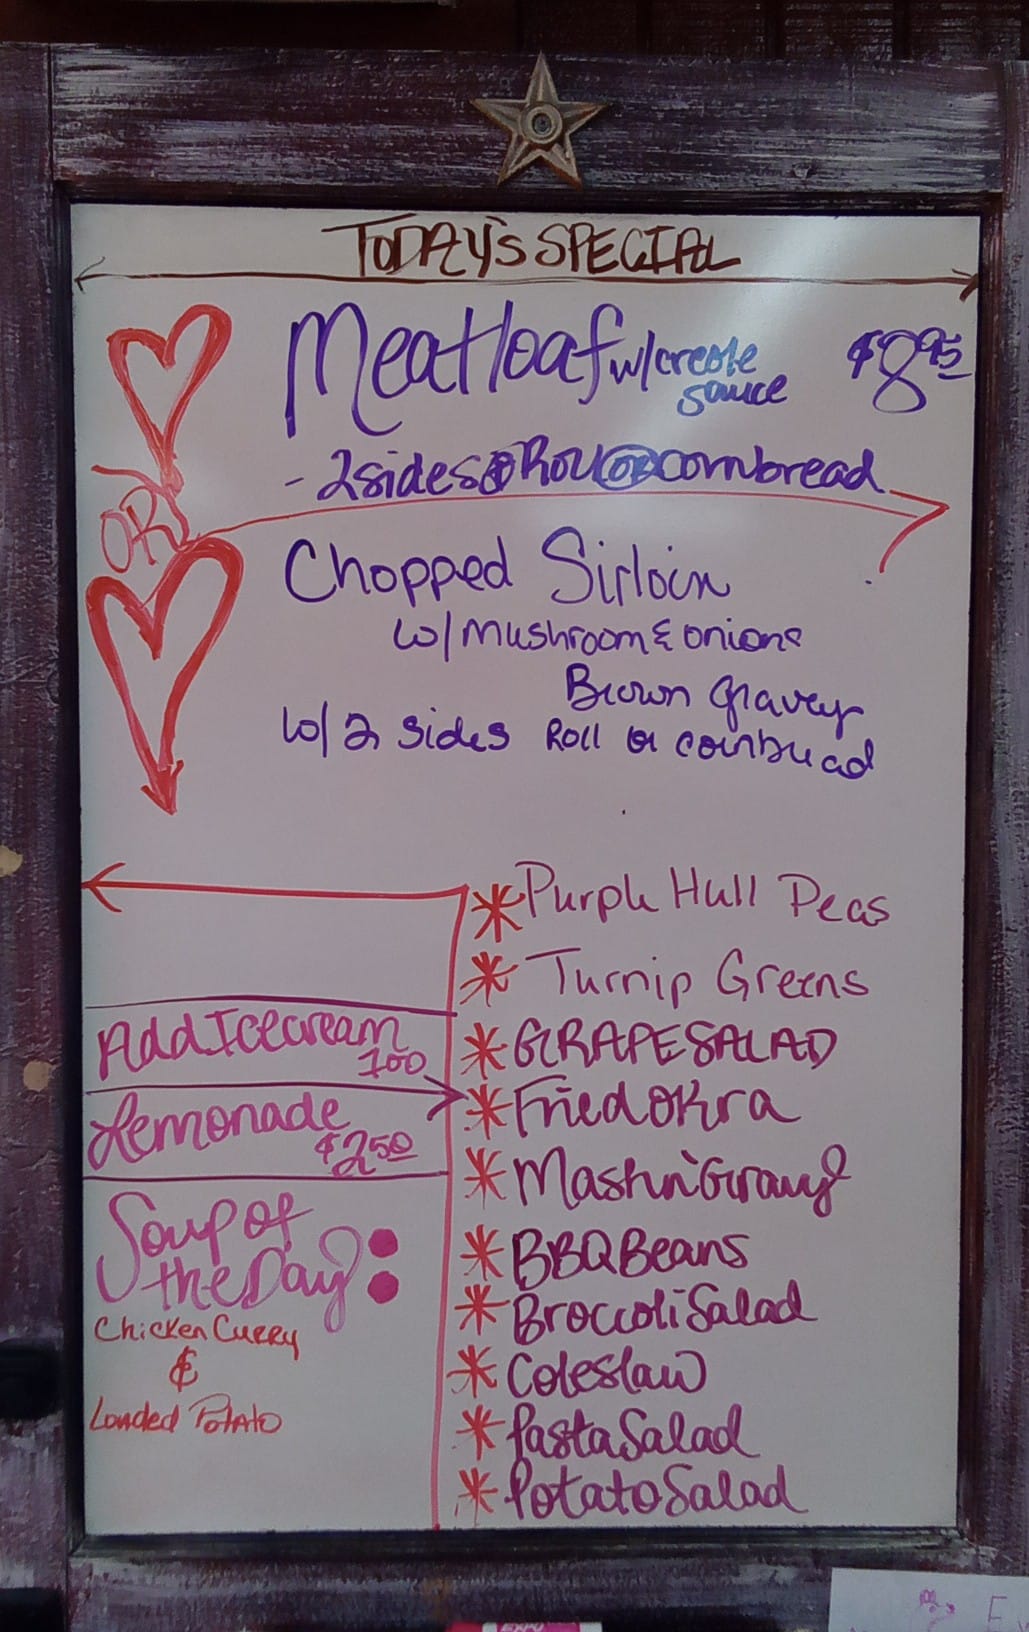 TODAY'S SPECIAL
Meatloaf w/creole
sauce
$8.95
- 2 sides & Roll OR cornbread
OR
Chopped Sirloin
w/ Mushroom & onions
Brown gravey
w/ 2 sides Roll or cornbread
* Purple Hull Peas
* Turnip Greens
* GRAPE SALAD
* Fried OKra
* Mashn'Gravy
* BBQ Beans
* Broccoli Salad
* Coleslaw
* Pasta Salad
* Potato Salad
Add Icecream
1.00
Lemonade
$2.50
Soup of
the Day:
Chicken Curry
&
Loaded Potato
EXPO